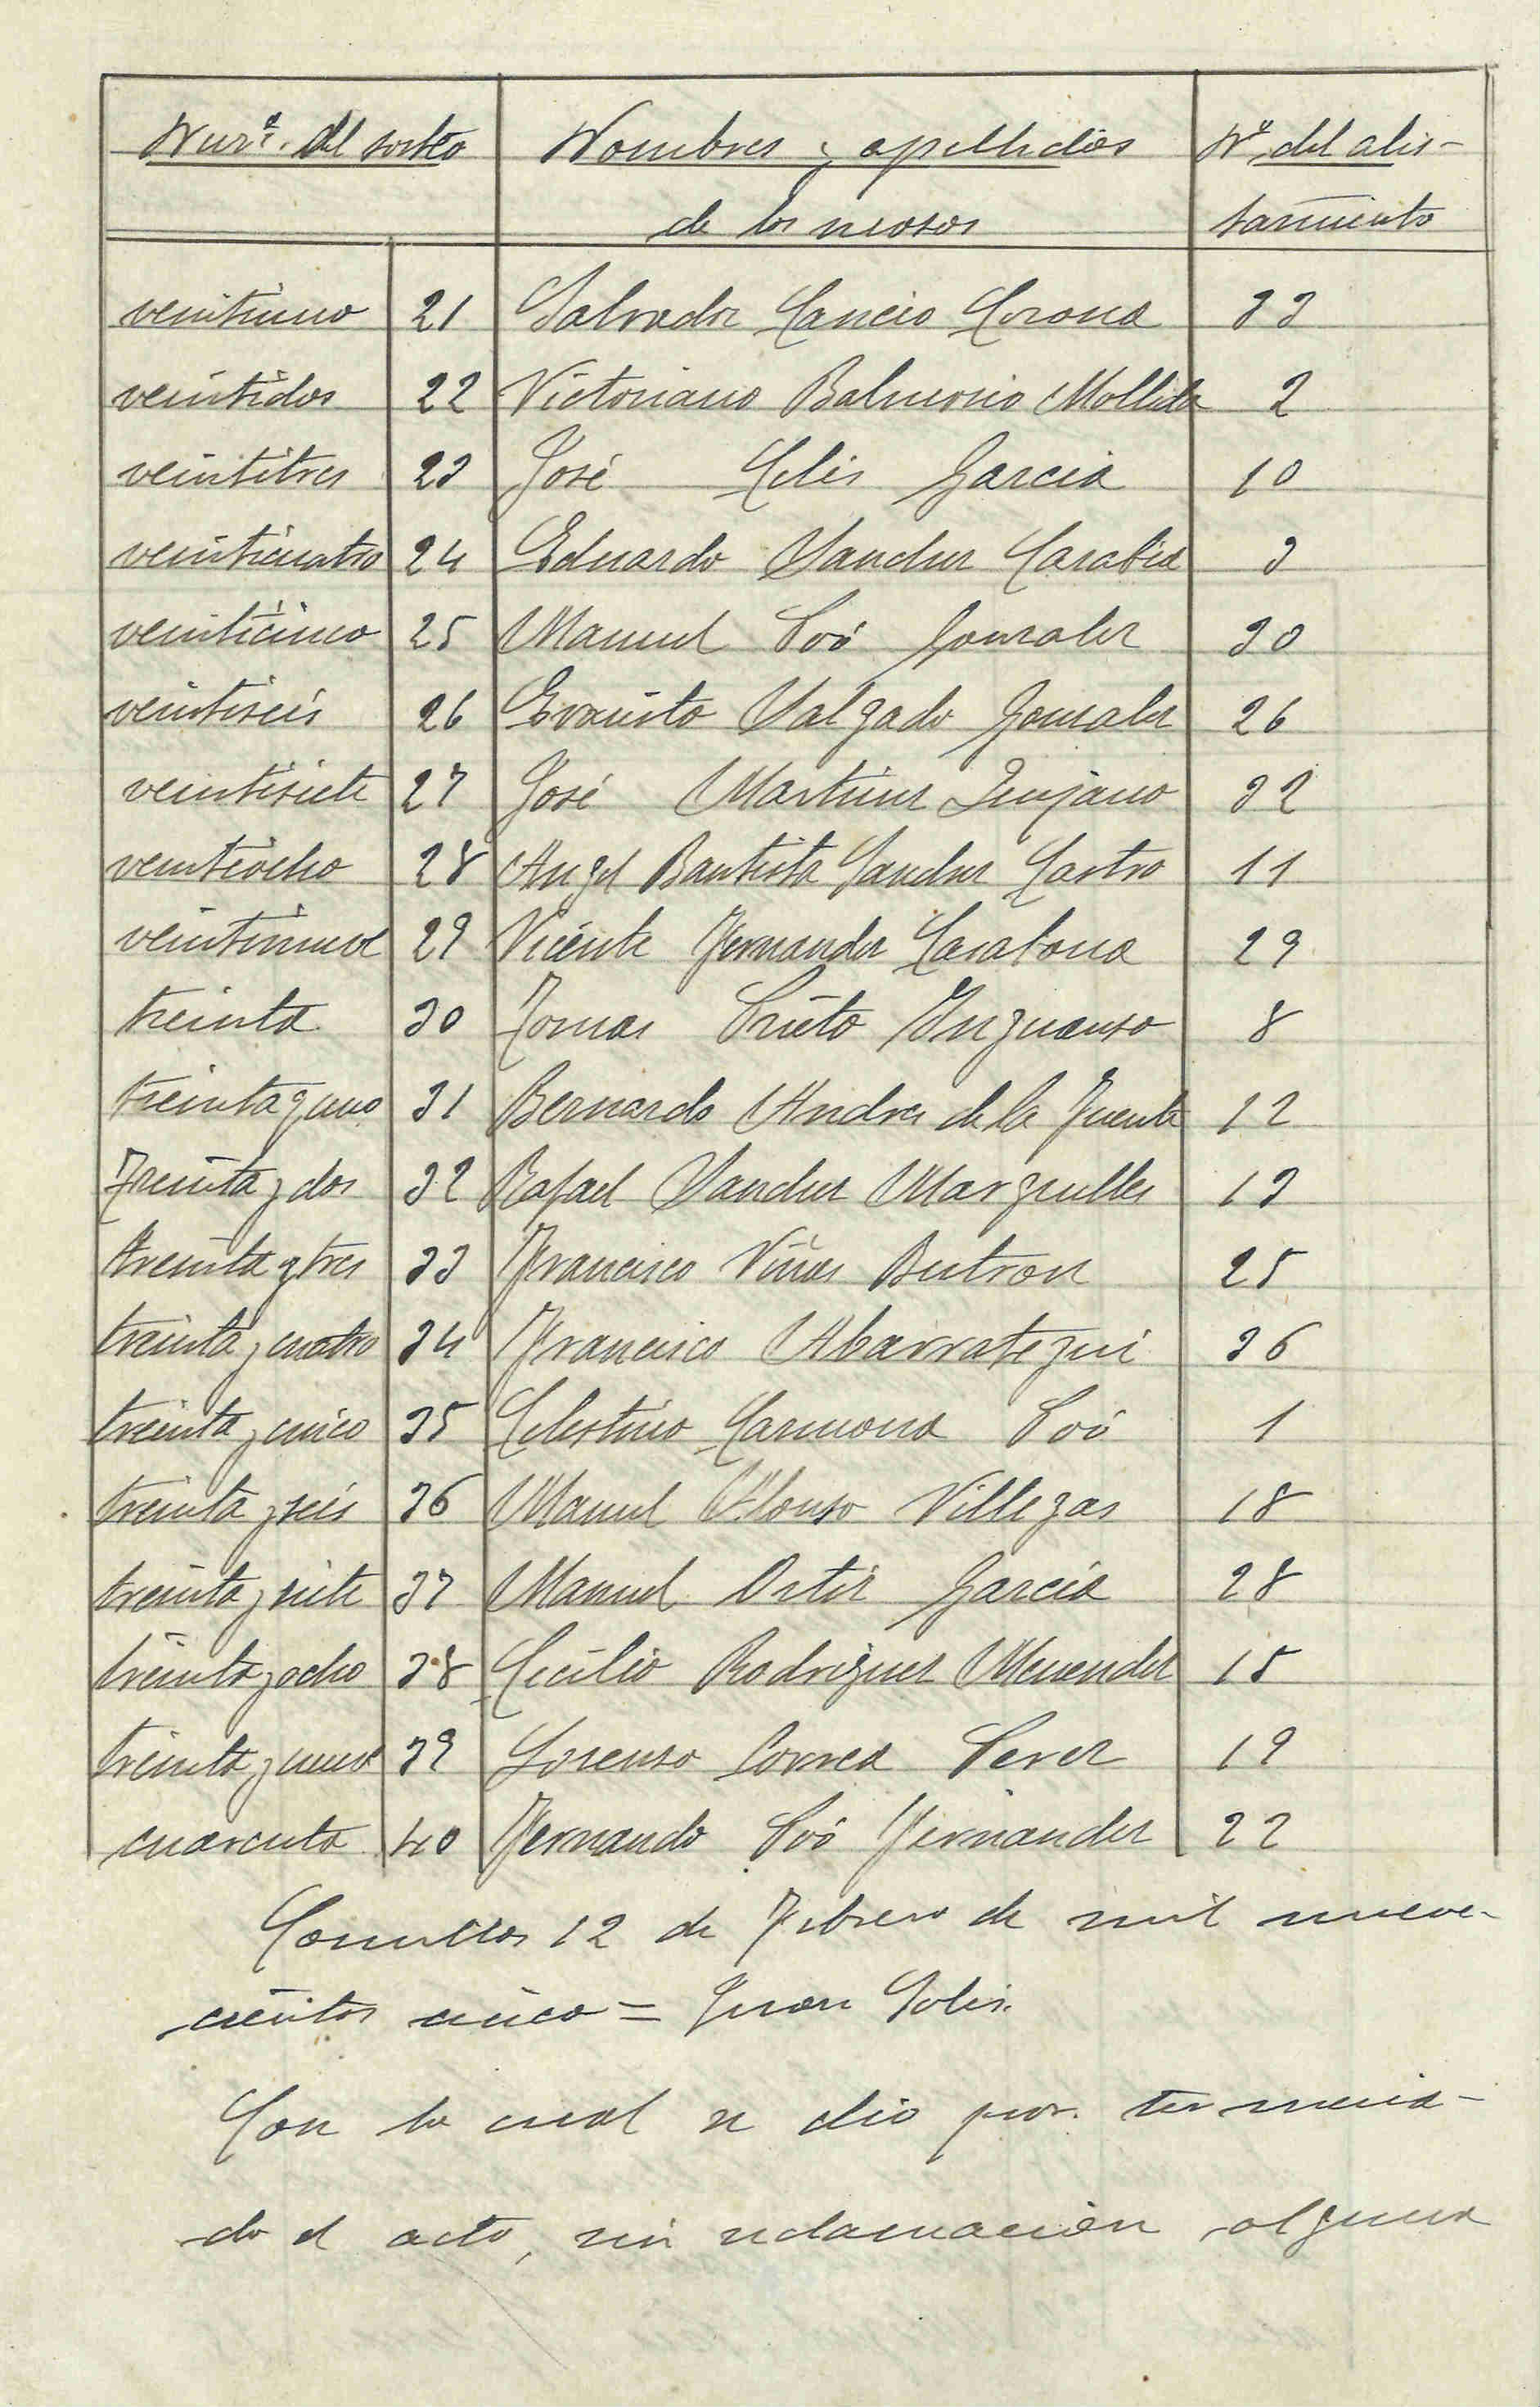 Numº. del sorteo Nombres y apellidos Nº del alis-
de los mosos tamiento
veintiuno 21 Salvador Cancio Corona 33
veintidos 22 Victoriano Balmorio Molleda 2
veintitres 23 José Celis Garcia 10
veinticuatro 24 Eduardo Sanchez Sarabia 3
veinticinco 25 Manuel Poó Gonzalez 30
veintiseis 26 Evaristo Salgado Gonzalez 26
veintisiete 27 José Martinez Quijano 32
veintiocho 28 Angel Bautista Sanchez Castro 11
veintinueve 29 Vicente Fernandez Casabona 29
treinta 30 Tomas Prieto Inguanzo 8
treinta y uno 31 Bernardo Andres de la Fuente 12
Treinta y dos 32 Rafael Sanchez Marguelles 13
treinta y tres 33 Francisco Viñas Butron 25
treinta y cuatro 34 Francisco Abarrategui 36
treinta y cinco 35 Celestino Carmona Poó 1
treinta y seis 36 Manuel Alonso Villegas 18
treinta y siete 37 Manuel Ortiz García 28
treinta y ocho 38 Cecilio Rodriguez Menendez 15
treinta y nueve 39 Lorenzo Correa Perez 19
cuarenta 40 Fernando Poó Fernandez 22
Comillas 12 de Febrero de mil nueve-
cientos cinco = Juan Solis.
Con lo cual se dio por termina-
do el acto, sin reclamación alguna